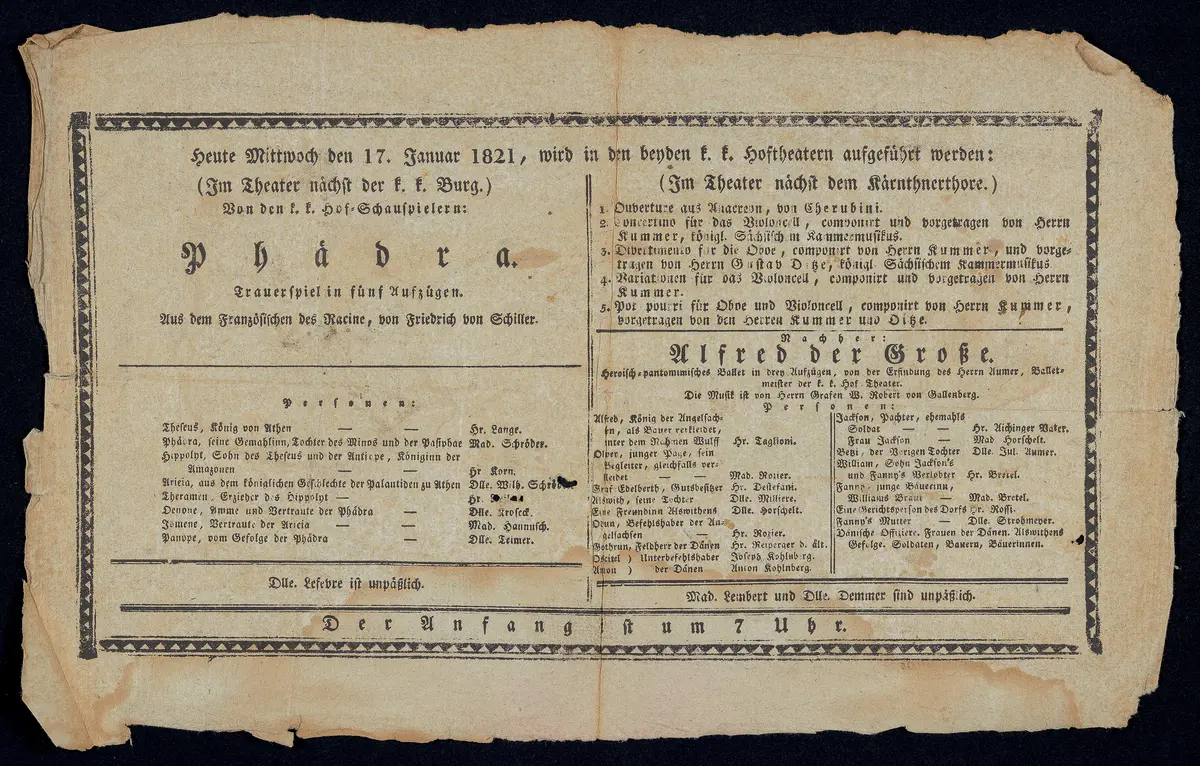 Heute Mittwoch den 17. Januar 1821, wird in den beyden k. k. Hoftheatern aufgeführt werden:
(Im Theater nächst der k. k. Burg.)
Von den k. k. Hof-Schauspielern:
Phädra.
Trauerspiel in fünf Aufzügen.
Aus dem Französischen des Racine, von Friedrich von Schiller.
Personen:
Theseus, König von Athen — — Hr. Lange.
Phädra, seine Gemahlinn, Tochter des Minos und der Pasiphae Mad. Schröder.
Hippolyt, Sohn des Theseus und der Antiope, Königinn der
Amazonen — — Hr Korn.
Aricia, aus dem königlichen Geschlechte der Palantiden zu Athen Dlle. Wilh. Schröder.
Theramen, Erzieher des Hippolyt — Hr.
Oenone, Amme und Vertraute der Phädra — Dlle. Kroseck.
Ismene, Vertraute der Aricia — Mad. Hannusch.
Panope, vom Gefolge der Phädra — Dlle. Teimer.
Dlle. Lefebre ist unpäßlich.
(Im Theater nächst dem Kärnthnerthore.)
1. Ouverture aus Anacreon, von Cherubini.
2. Concertino für das Violoncell, componirt und vorgetragen von Herrn
Kummer, königl. Sächsischem Kammermusikus.
3. Divertimento für die Oboe, componirt von Herrn Kummer, und vorge-
tragen von Herrn Gustav Ditze, königl. Sächsischem Kammermusikus
4. Variationen für das Violoncell, componirt und vorgetragen von Herrn
Kummer.
5. Pot pourri für Oboe und Violoncell, componirt von Herrn Kummer,
vorgetragen von den Herren Kummer und Ditze.
Nachher:
Alfred der Große.
Heroisch-pantomimisches Ballet in drey Aufzügen, von der Erfindung des Herrn Aumer, Ballet-
meister der k. k. Hof Theater.
Die Musik ist von Herrn Grafen W. Robert von Gallenberg.
Personen:
Alfred, König der Angelsach-
sen, als Bauer verkleidet,
unter dem Nahmen Wulff Hr. Taglioni.
Olver, junger Page, sein
Begleiter, gleichfalls ver-
kleidet — Mad. Rozier.
Graf Edelberth, Gutsbesitzer Hr. Destefani.
Alswith, seine Tochter Dlle. Milliere.
Eine Freundinn Alswithens Dlle. Horschelt.
Odun, Befehlshaber der An-
gelsachsen — Hr. Rozier.
Gothrun, Feldherr der Dänen Hr. Reiberger d. ält.
Oscitel ) Unterbefehlshaber Joseph Kohlnberg.
Amon ) der Dänen Anton Kohlnberg.
Jackson, Pachter, ehemahls
Soldat — — Hr. Aichinger Vater.
Frau Jackson — Mad Horschelt.
Betzi, der Vorigen Tochter Dlle. Jul. Aumer.
William, Sohn Jackson's
und Fanny's Verlobter Hr. Bretel.
Fanny, junge Bäuerinn,
Williams Braut — Mad. Bretel.
Eine Gerichtsperson des Dorfs Hr. Rossi.
Fanny's Mutter — Dlle. Strohmeyer.
Dänische Offiziere. Frauen der Dänen. Alswithens
Gefolge. Soldaten, Bauern, Bäuerinnen.
Mad. Lembert und Dlle. Demmer sind unpäßlich.
Der Anfang ist um 7 Uhr.